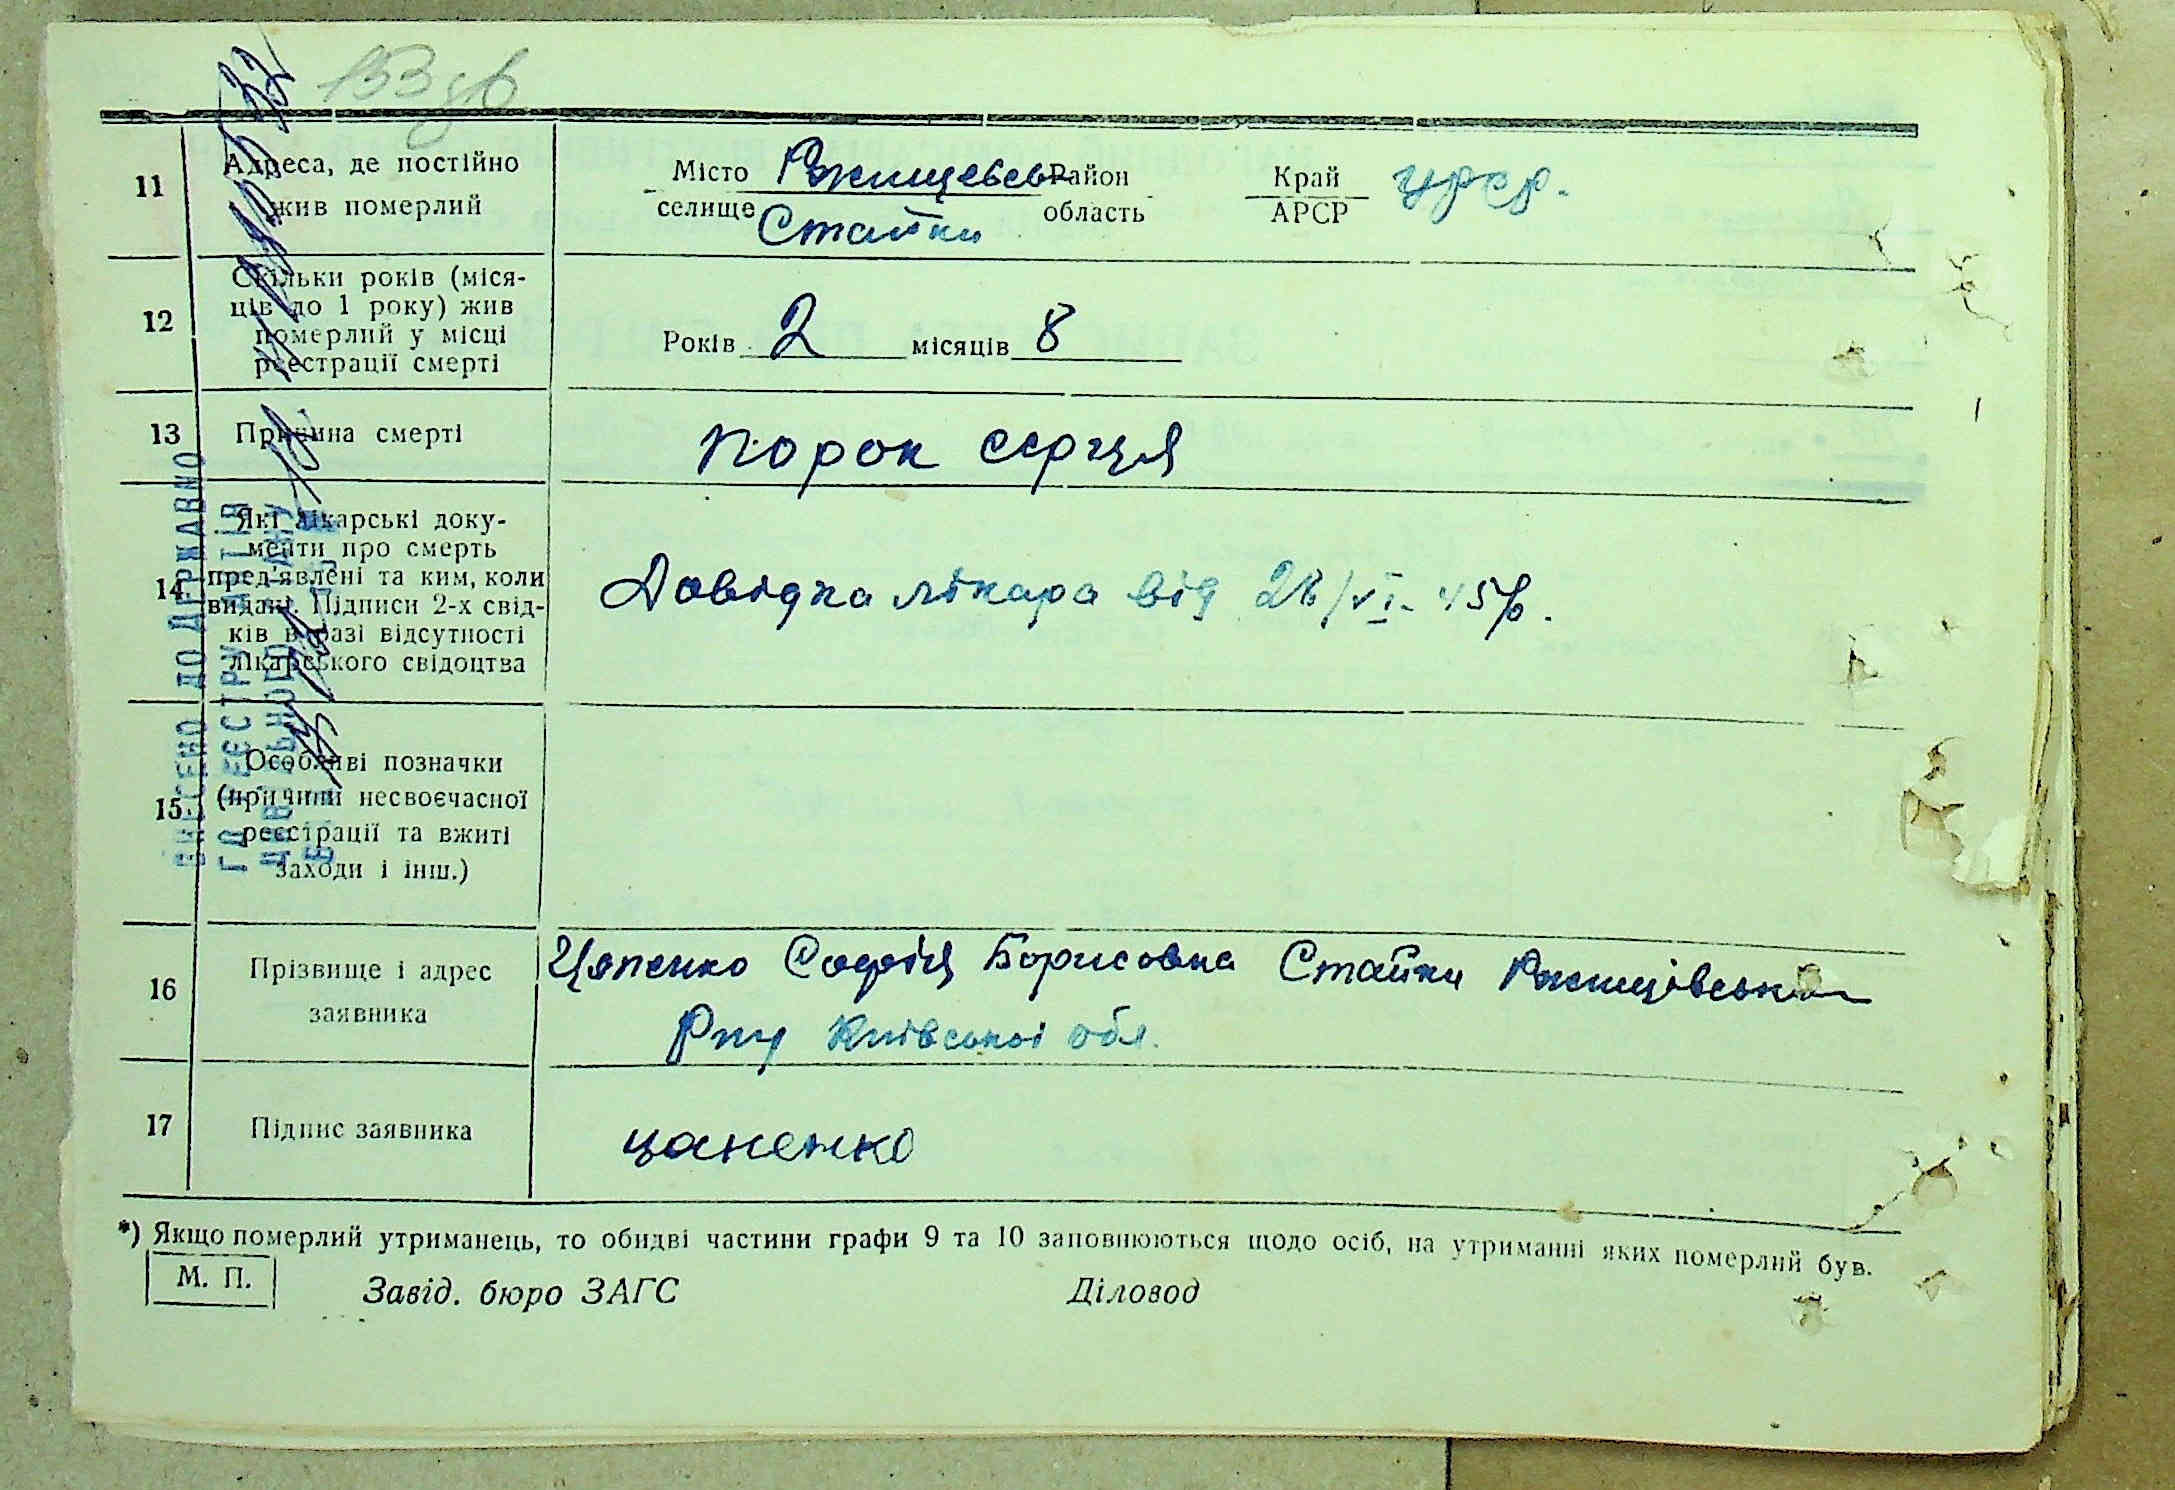 153 зв
11
Адреса, де постійно
жив померлий
Місто Ржищевсь Район Край УРСР.
селище Стайки область АРСР
12
Скільки років (міся-
ців до 1 року) жив
померлий у місці
реєстрації смерті
Років 2 місяців 8
13
Причина смерті
порок серця
14.
Які лікарські доку-
менти про смерть
пред'явлені та ким, коли
видані. Підписи 2-х свід-
ків в разі відсутності
лікарського свідоцтва
Довідка лікара від 28/VI-45р.
15.
Особливі позначки
(причини несвоєчасної
реєстрації та вжиті
заходи і інш.)
16
Прізвище і адрес
заявника
Цапенко Софія Борисовна Стайки Ржищівськ
Рну Київської обл.
17
Підпис заявника
цапенко
*) Якщо померлий утриманець, то обидві частини графи 9 та 10 заповнюються щодо осіб, на утриманні яких померлий був.
М. П.
Завід. бюро ЗАГС Діловод
ВНЕСЕНО ДО ДЕРЖАВНО
ГО РЕЄСТРУ АКТІВ
ЦИВІЛЬНОГО СТАНУ